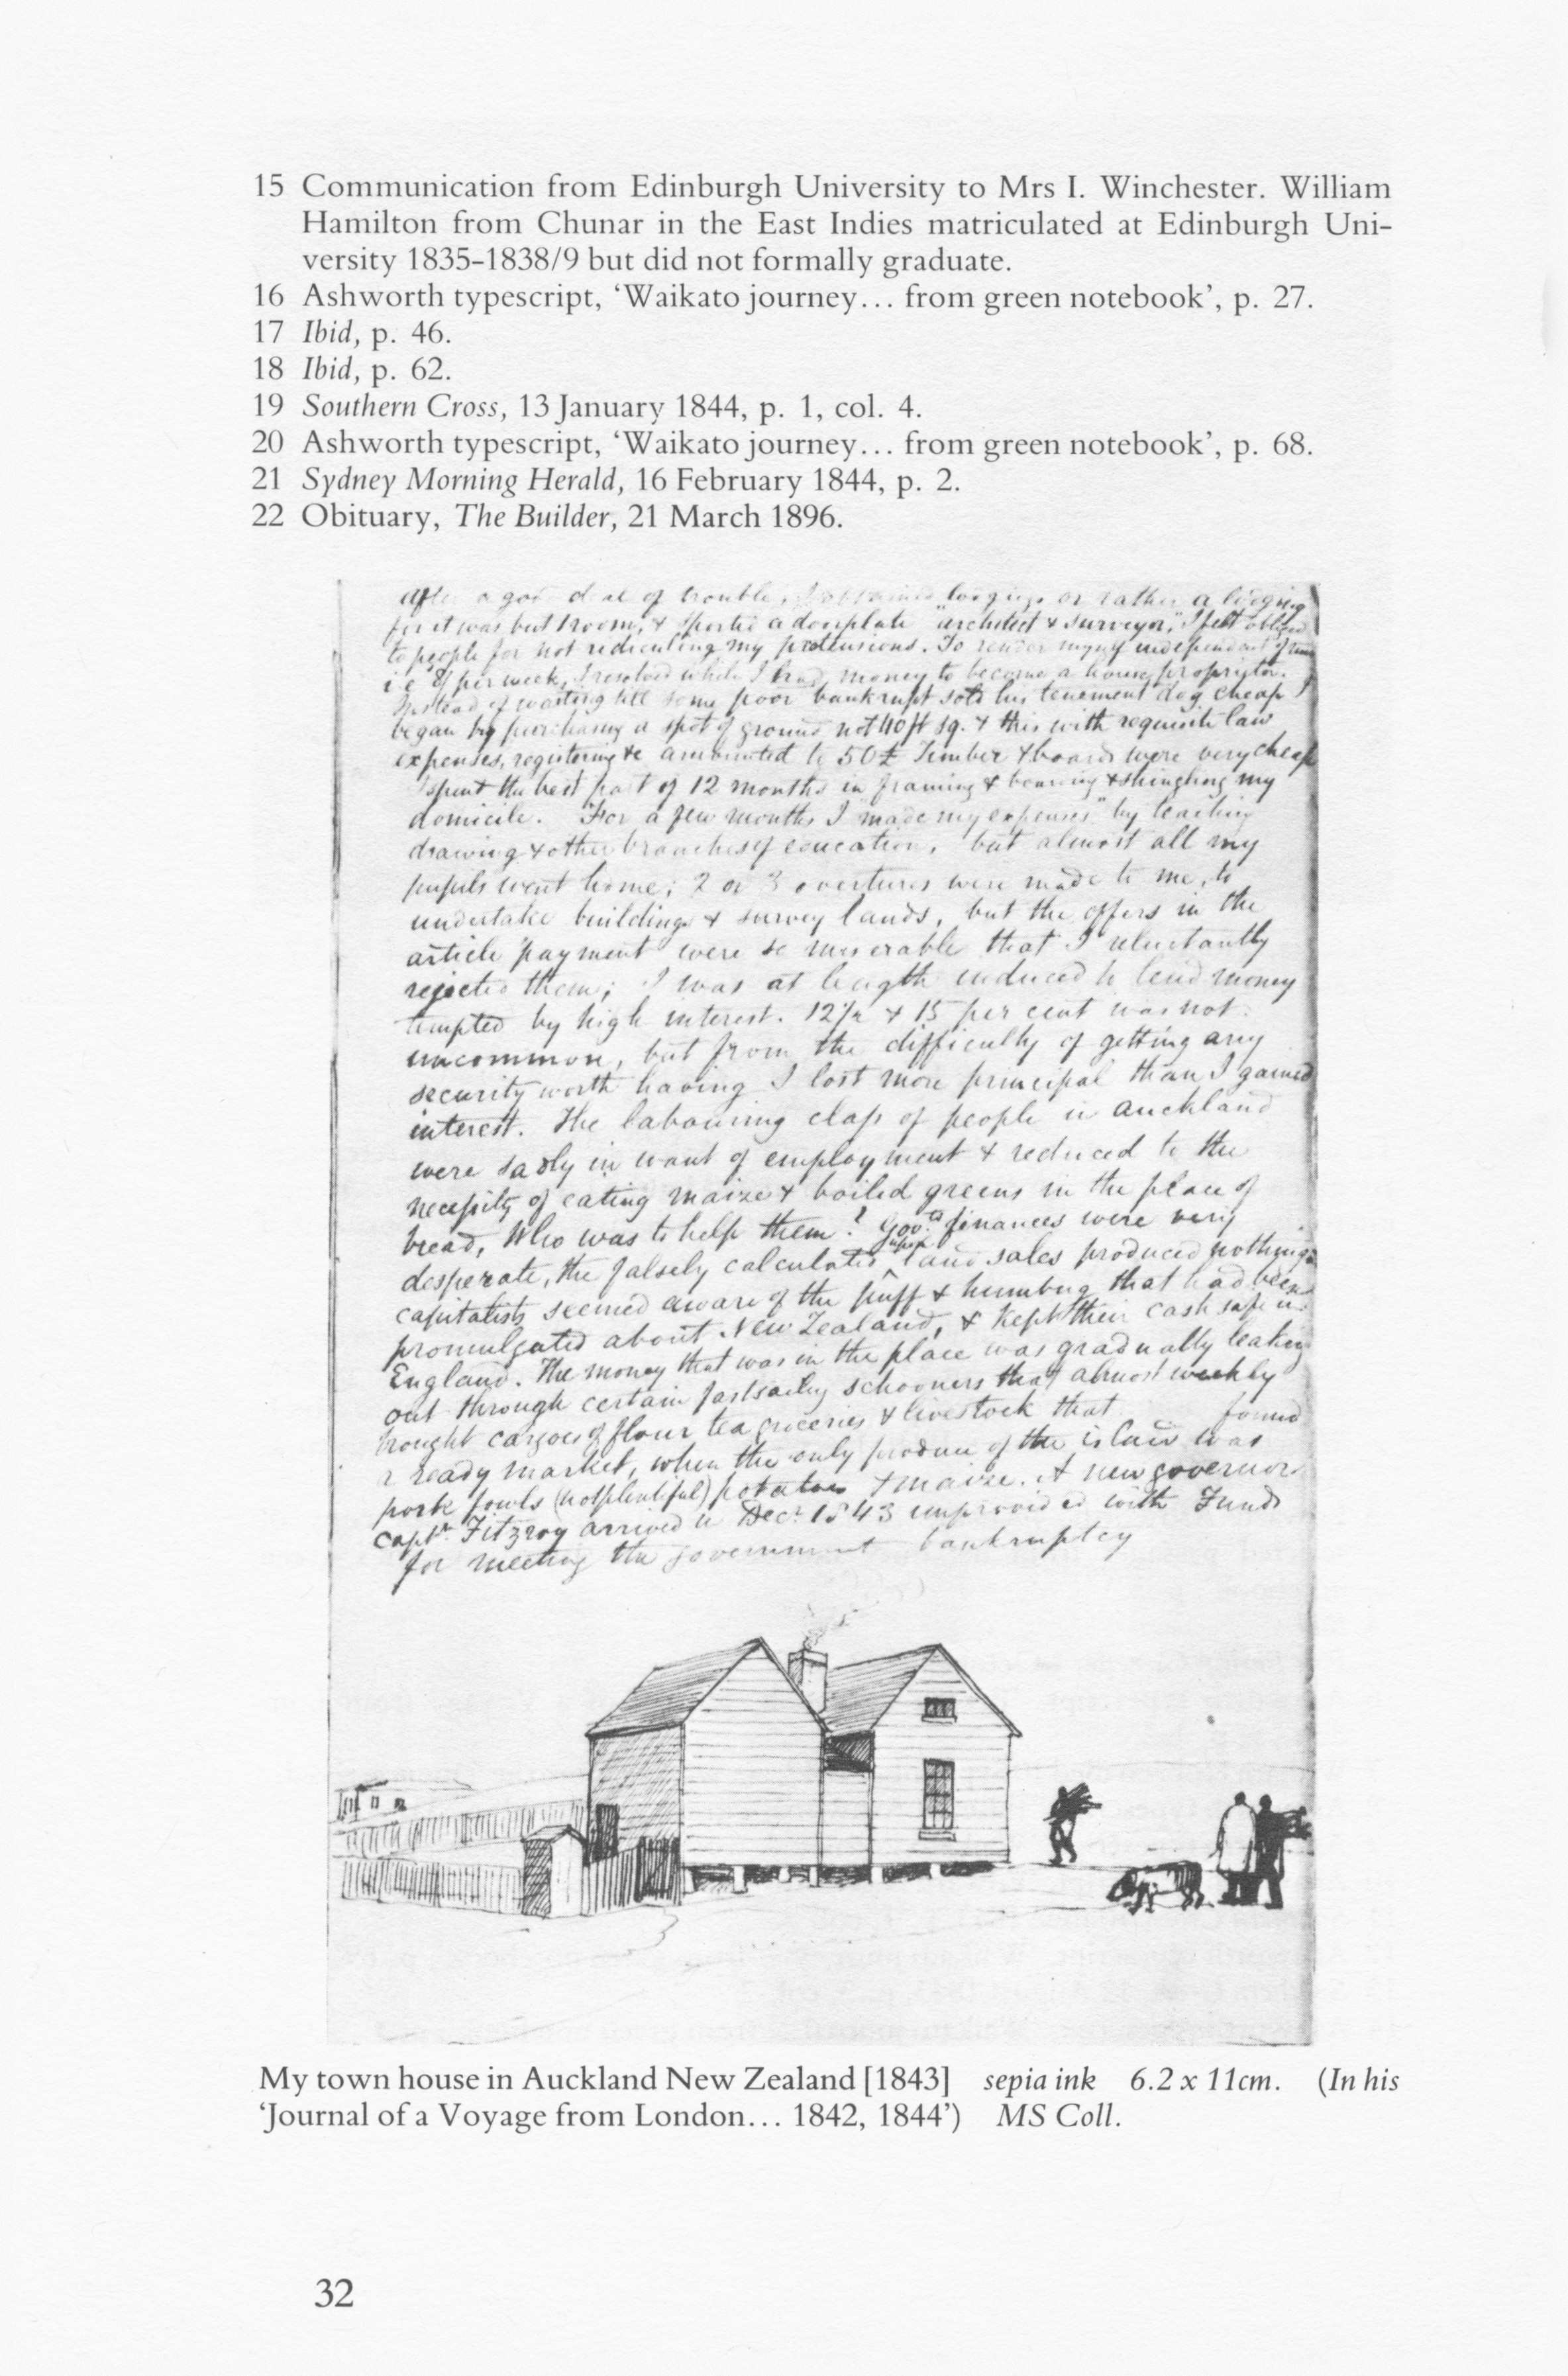 15 Communication from Edinburgh University to Mrs I. Winchester. William
Hamilton from Chunar in the East Indies matriculated at Edinburgh Uni-
versity 1835–1838/9 but did not formally graduate.
16 Ashworth typescript, ‘Waikato journey... from green notebook’, p. 27.
17 Ibid, p. 46.
18 Ibid, p. 62.
19 Southern Cross, 13 January 1844, p. 1, col. 4.
20 Ashworth typescript, ‘Waikato journey... from green notebook’, p. 68.
21 Sydney Morning Herald, 16 February 1844, p. 2.
22 Obituary, The Builder, 21 March 1896.
after a good deal of trouble, I obtained lodgings or rather a lodging
for it was but 1 room, & sported a doorplate "architect & surveyor," I felt obliged
to people for not rediculing my pretensions. To render myself independent of
i.e. per week, I resolved while I had money to become a house proprietor.
Instead of waiting till some poor bankrupt sold his tenement dog cheap I
began by purchasing a spot of ground not 40 ft sq. & this with requisite law
expenses, registering &c amounted to 50£ Timber & boards were very cheap
I spent the best part of 12 months in framing & boarding & shingling my
domicile. For a few months I "made my expenses" by teaching
drawing & other branches of education, but almost all my
pupils went home; 2 or 3 overtures were made to me, to
undertake buildings & survey lands, but the offers in the
article payment were so miserable that I reluctantly
rejected them; I was at length induced to lend money
tempted by high interest. 12½ & 15 per cent was not
uncommon, but from the difficulty of getting any
security worth having I lost more principal than I gained
interest. The labouring class of people in Auckland
were sadly in want of employment & reduced to the
necessity of eating maize & boiled greens in the place of
bread, Who was to help them? Govt. finances were very
desperate, the falsely calculated upon land sales produced nothing
capitalists seemed aware of the puff & humbug that had been
promulgated about New Zealand, & kept their cash safe in
England. The money that was in the place was gradually leaking
out through certain fastsailing schooners that almost weekly
brought cargoes of flour tea groceries & livestock that found
a ready market, when the only produce of the island was
pork fowls (not plentiful) potatoes & maize. A new governor
captn. Fitzroy arrived in Decr. 1843 unprovided with Funds
for meeting the government bankruptcy
My town house in Auckland New Zealand [1843] sepia ink 6.2 x 11cm. (In his
‘Journal of a Voyage from London... 1842, 1844’) MS Coll.
32